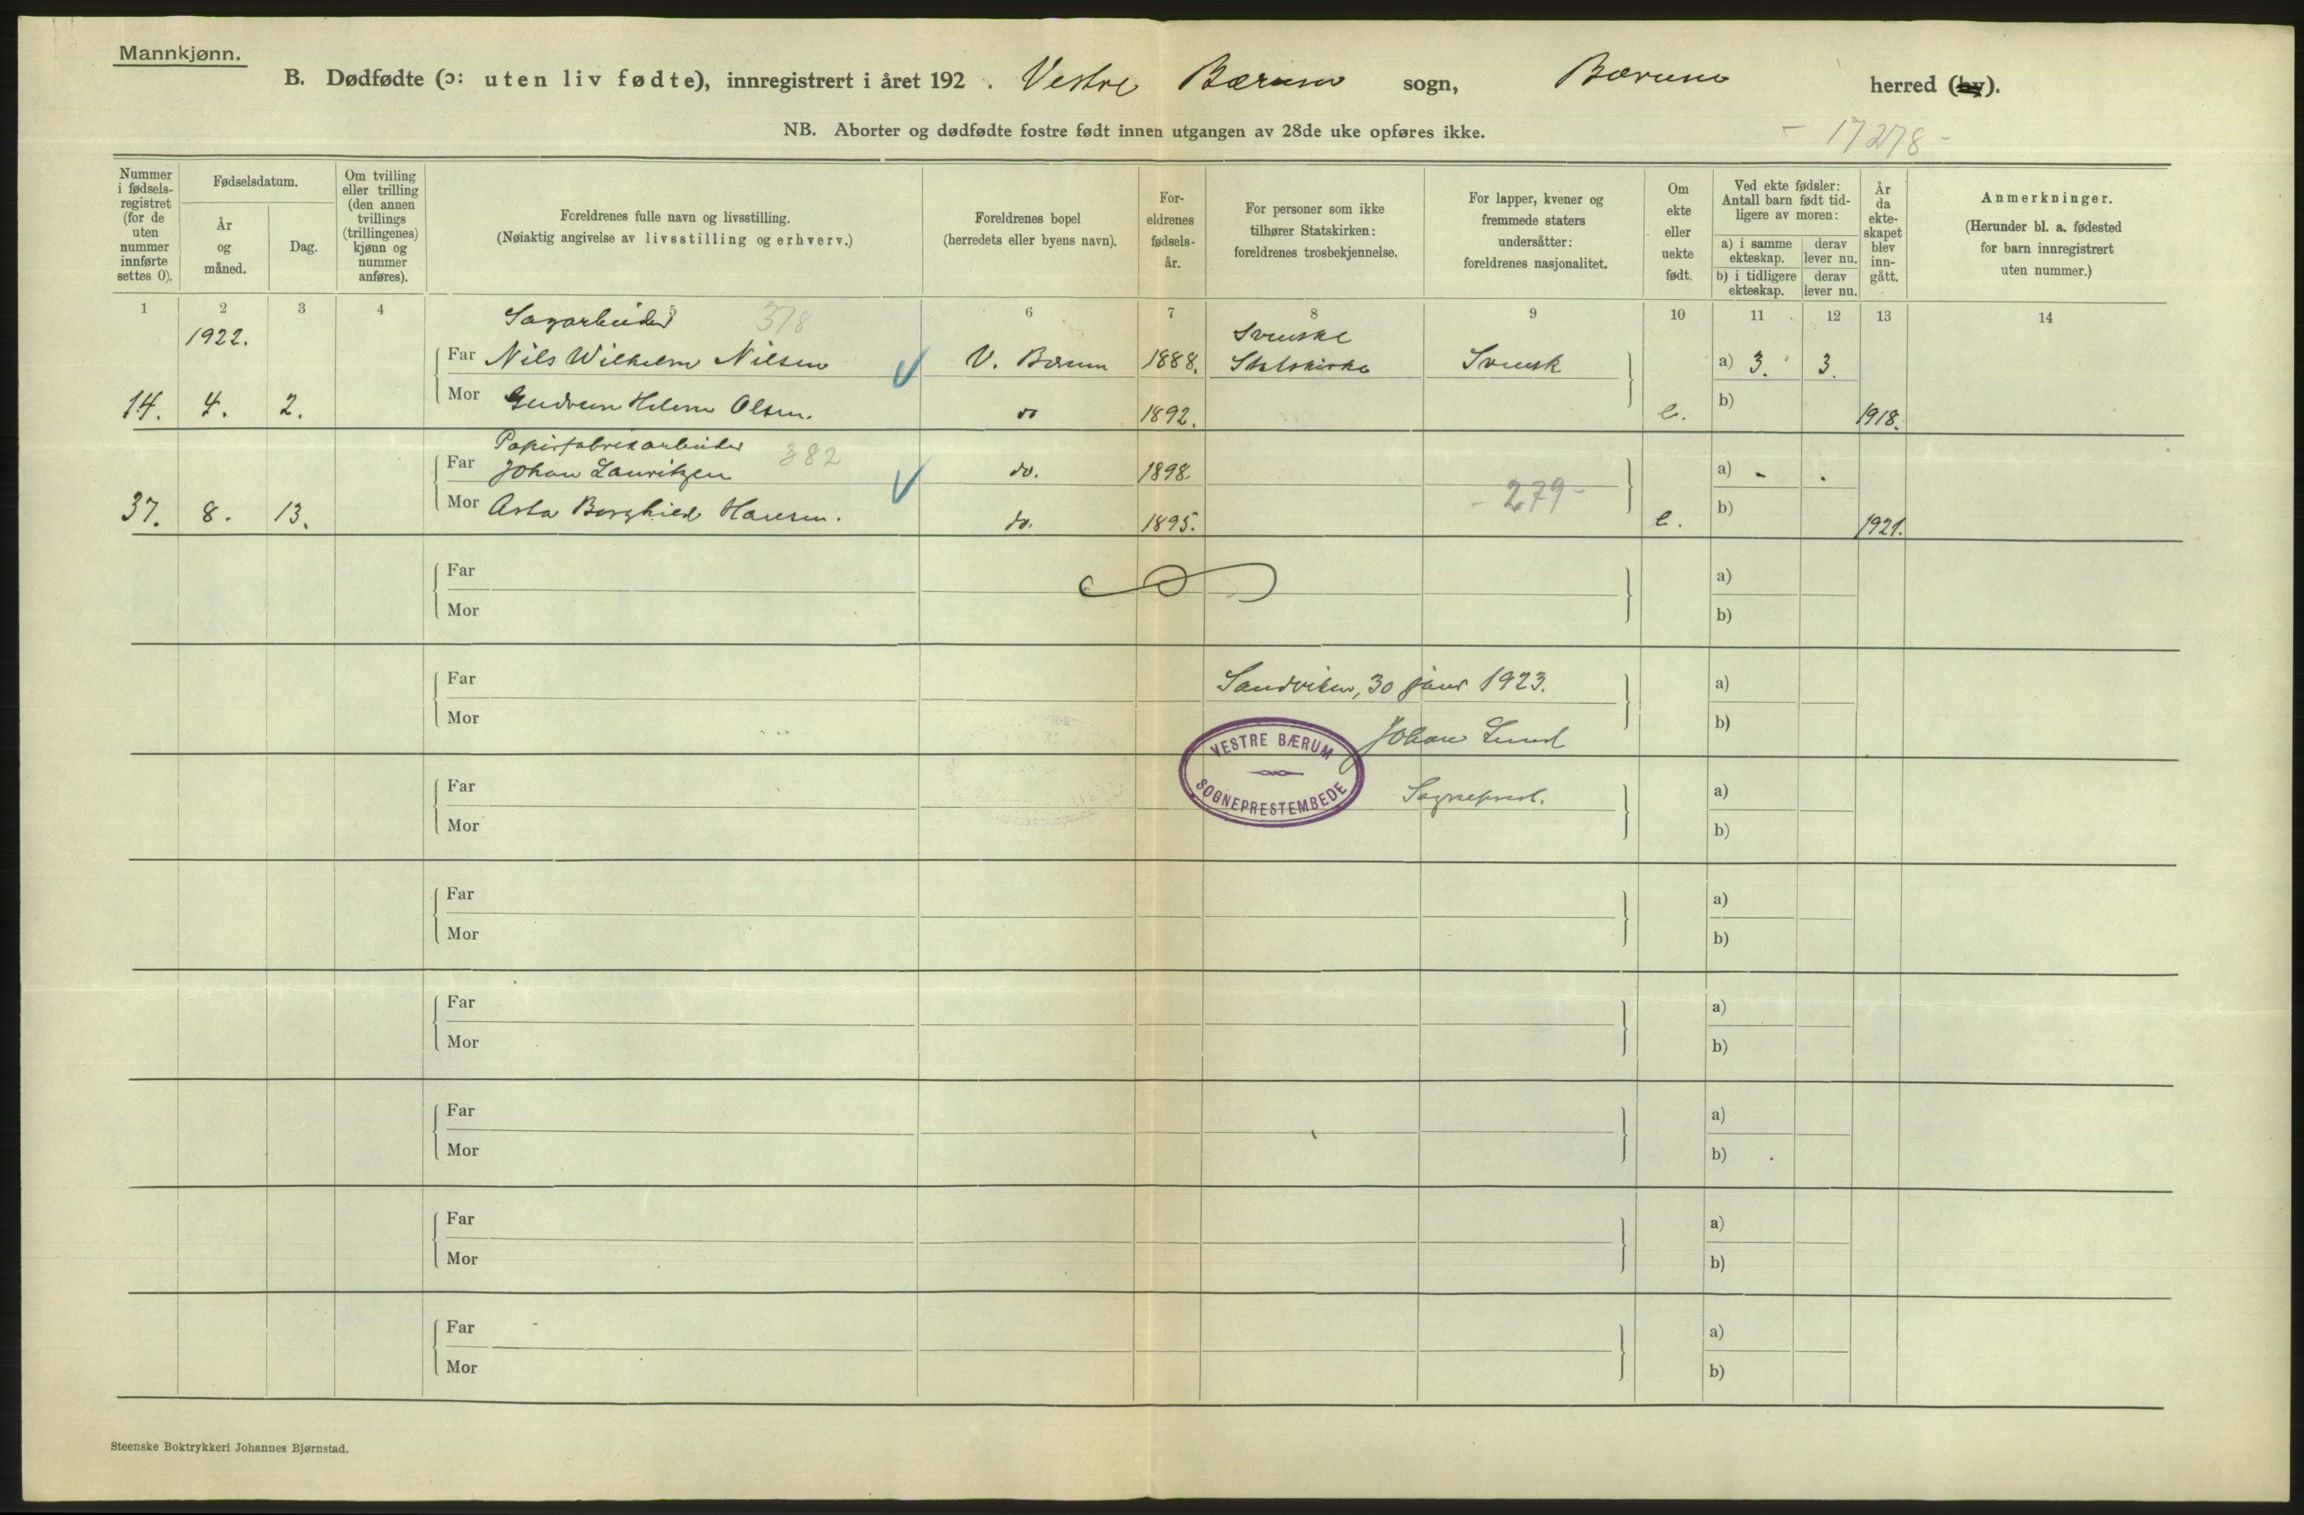 Mannkjønn.
B. Dødfødte (ɔ: uten liv fødte), innregistrert i året 192 . Vestre Bærum sogn, Bærum herred (by).
NB. Aborter og dødfødte fostre født innen utgangen av 28de uke opføres ikke.
- 17278 -
Nummer i fødsels- registret (for de uten nummer innførte settes 0).
Fødselsdatum.
År og måned.
Dag.
Om tvilling eller trilling (den annen tvillings (trillingenes) kjønn og nummer anføres).
Foreldrenes fulle navn og livsstilling.
(Nøiaktig angivelse av livsstilling og erhverv.)
Foreldrenes bopel
(herredets eller byens navn).
For- eldrenes fødsels- år.
For personer som ikke tilhører Statskirken: foreldrenes trosbekjennelse.
For lapper, kvener og fremmede staters undersåtter: foreldrenes nasjonalitet.
Om ekte eller uekte født.
Ved ekte fødsler: Antall barn født tid- ligere av moren:
a) i samme ekteskap.
derav lever nu.
b) i tidligere ekteskap.
derav lever nu.
År da ekte- skapet blev inn- gått.
Anmerkninger.
(Herunder bl. a. fødested for barn innregistrert uten nummer.)
1 2 3 4 5 6 7 8 9 10 11 12 13 14
1922. Sagarbeider 378 Svenske
Far Nils Wilhelm Nilsen V. Bærum 1888. Statskirke Svensk a) 3. 3.
14. 4. 2. Mor Gudrun Helene Olsen. do 1892. e. b) 1918.
Papirfabrikarbeider 382
Far Johan Lauritzen do. 1898. a) - .
37. 8. 13. Mor Asta Borghild Hansen. do. 1895. - 279 - e. b) 1921.
Far a)
Mor b)
Far Sandviken, 30 januar 1923. a)
Mor Johan Lund b)
VESTRE BÆRUM
SOGNEPRESTEMBEDE
Far Sogneprest. a)
Mor b)
Far a)
Mor b)
Far a)
Mor b)
Far a)
Mor b)
Far a)
Mor b)
Far a)
Mor b)
Steenske Boktrykkeri Johannes Bjørnstad.